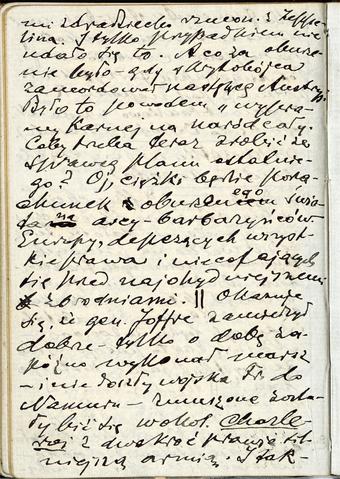 mi zdradziecko rzucon. z Zeppe-
lina. I tylko przypadkiem nie
udało się to. A co za oburze-
nie było – gdy
zamordował następcę Austryi.
Było to powodem „wypra-
wy karnej na naród cały.
Cały trzeba teraz zrobić ze
sprawcą planu ostatnie-
go? Oj, ciężki będzie pora-
chunek z oburzonego świa-
ta na arcy-barbarzyńców
Europy, depczących wszyst-
kie prawa i niecofających
się przed najohydniejszemi
zbrodniami. || Okazuje
się, że gen. Joffre zamierzył
dobrze – tylko o dobę za-
późno wykonał marsz
– i nie doszły wojska Fr. do
Namuru – zmuszone zosta-
ły bić się wokoł. Charle-
roi z dwakroć prawie sil-
niejszą armią. I tak-